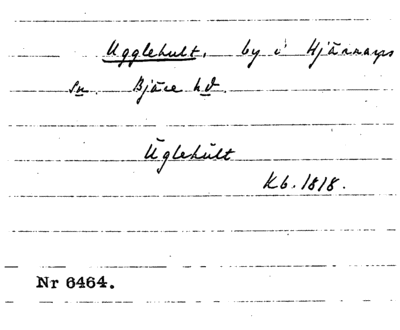 Ugglehult, by i Hjärnarps
sn. Bjäre hd.
Uglehult
Kb. 1818.
Nr 6464.